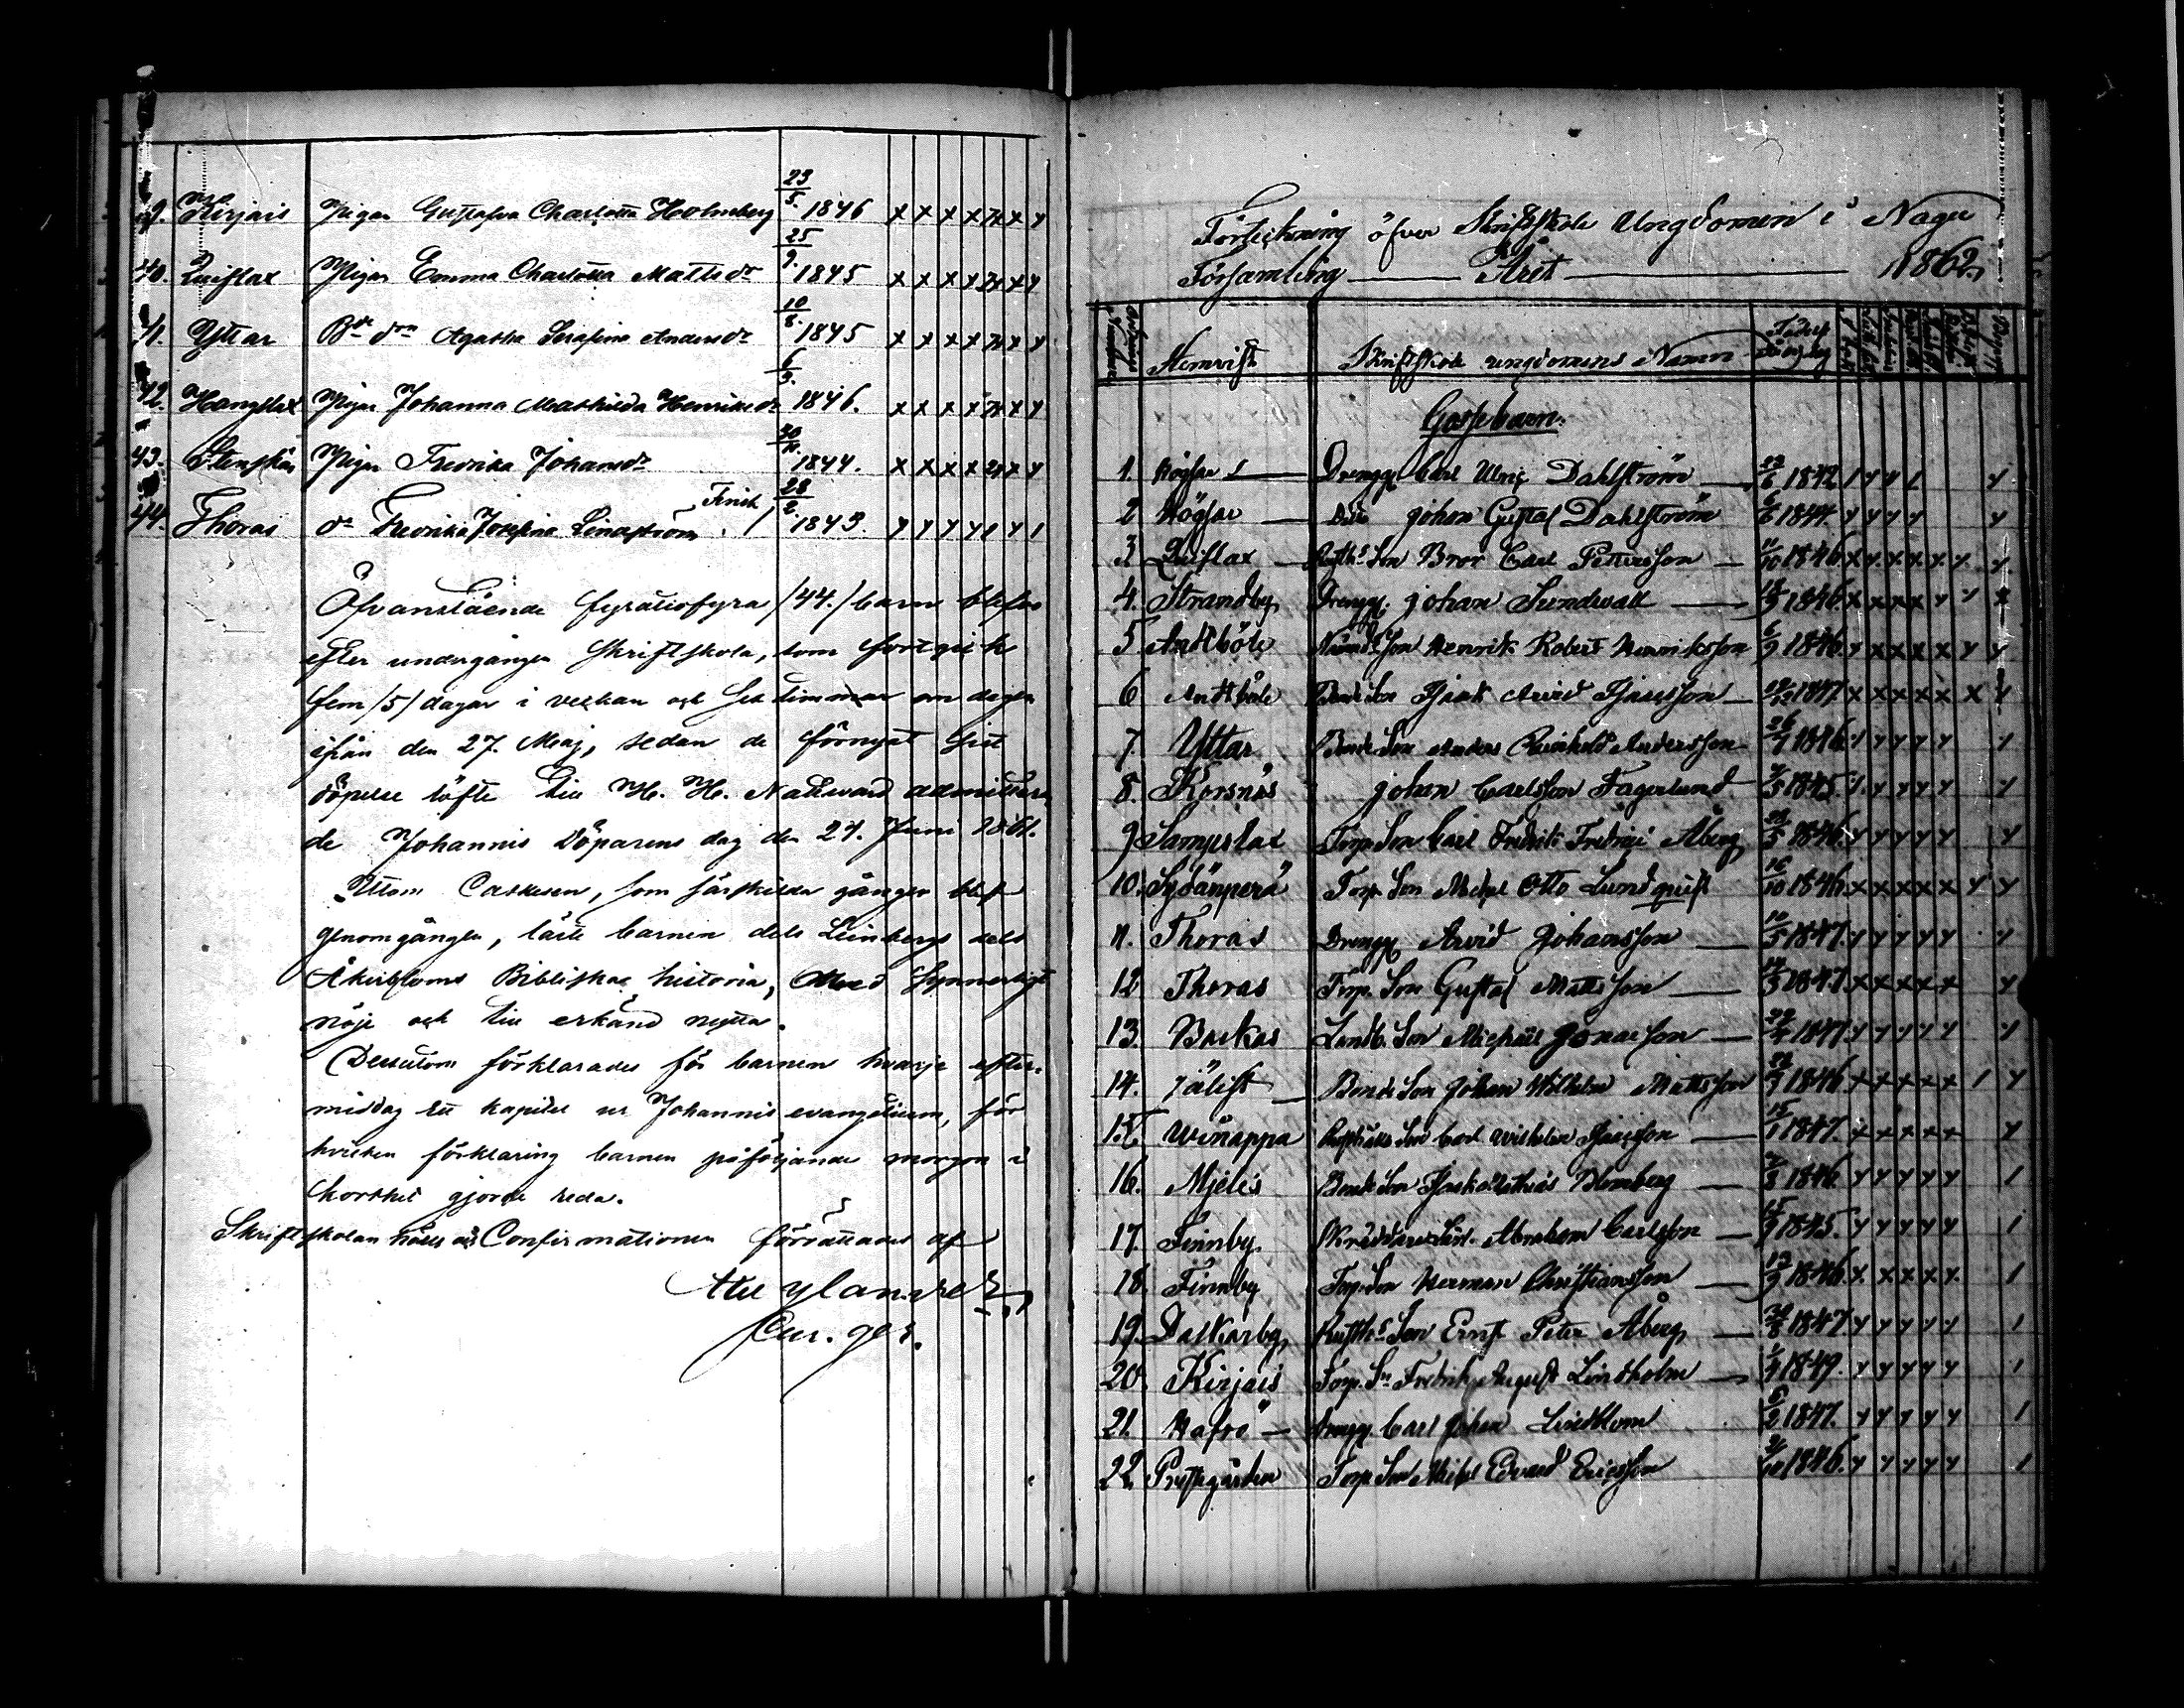 23/5.
Kirjais Pigan Gustafva Charlotta Holmberg 1846 x x x x x x x
25/9.
40. Qviflax Pigan Emma Charlotta Mattsdr 1845 x x x x x x x
10/8.
41. Yttar Bde drn Agatha Serafina Andersdr 1845 x x x x x x x
6/9.
42. Hangslax Pigan Johanna Mathilda Henriksdr 1846. x x x x x x x
30/11.
43. Stenskär Pigan Fredrika Johansdr 1844. x x x x x x x
Finsk 28/2.
44. Thoras dr Fredrika Josefina Lindström 1843.
Ofvanstående fyratiofyra /44./ barn blefvo
efter undergången Skriftskola, som fortgick
fem /5/ dagar i veckan och sex timmar om dagen
ifrån den 27. Maj, sedan de förnyat sitt
döpelse löfte till H. H. Nattvard admitterade
de Johannis Döparens dag den 24. Juni 1861.
Utom Catkesen, som särskilda gånger blef
genomgången, läste barnen dels Leinbergs dels
Åkerbloms Bibliska historia, med synnerligt
nöje och till erkänd nytta.
Dessutom förklarades för barnen hvarje efter-
middag ett kapitel ur Johannis evangelium, för
hvilken förklaring barnen påföljande morgon i
korthet gjorde reda.
Skriftskolan hölls och Confirmationen förrättades af
Förteckning öfver Skriftskole Ungdomen i Nagu
Församling Året 1862.
Hemvist Skriftskole ungdomens Namn
Gossebarn.
1. Högsar Drengg. Carl Ulric Dahlström 1842
2 Högsar Johan Gustaf Dahlström 6/6 1844.
3 Qviflax Rusth. Son Bror Carl Pettersson 11/10 1846
4. Strandby Drengg. Johan Sundwall 1846.
5 Anttböle Nämnd. Son Henrik Robert Henriksson 6/9 1846.
6 Anttböle Bonde Son Isak Arvid Isacsson 1847
7. Yttar Bonde Son Anders Reinhold Andersson 26/7 1846
8. Korsnäs Johan Carlsson Fagerlund 1845.
9 Sampslax Torp. Son Carl Fredrik Fredrici Åberg 1846.
10. Sydänperä Torp. Son Michel Otto Lundqvist 16/10 1846.
11. Thoras Drengg. Arvid Johansson 10/5 1847.
12 Thoras Torp. Son Gustaf Mattsson 1847.
13. Backas Landb. Son Michaël Jonasson 1847.
14. Jälist Bonde Son Johan Wilhelm Mattsson 1846.
15. Winappa Son Carl Wilhelm Isacsson 15/1 1847.
16. Mjelis Bonde Son Isak Mathias Blomberg 1846
17. Finnby. Skräddare Son. Abraham Carlsson 15/9 1845.
18. Finnby Torp. Son Herman Christiansson 1846.
19. Daskarby Rusth. Son Ernst Peter Åberg 1847
20. Kirjais Torp. Sn Fredrik August Lindholm 1849.
21. Hafrö Drengg. Carl Johan Lindblom 1847.
22. Prestgården Torp. Son Michel Edvard Ericsson 1846.